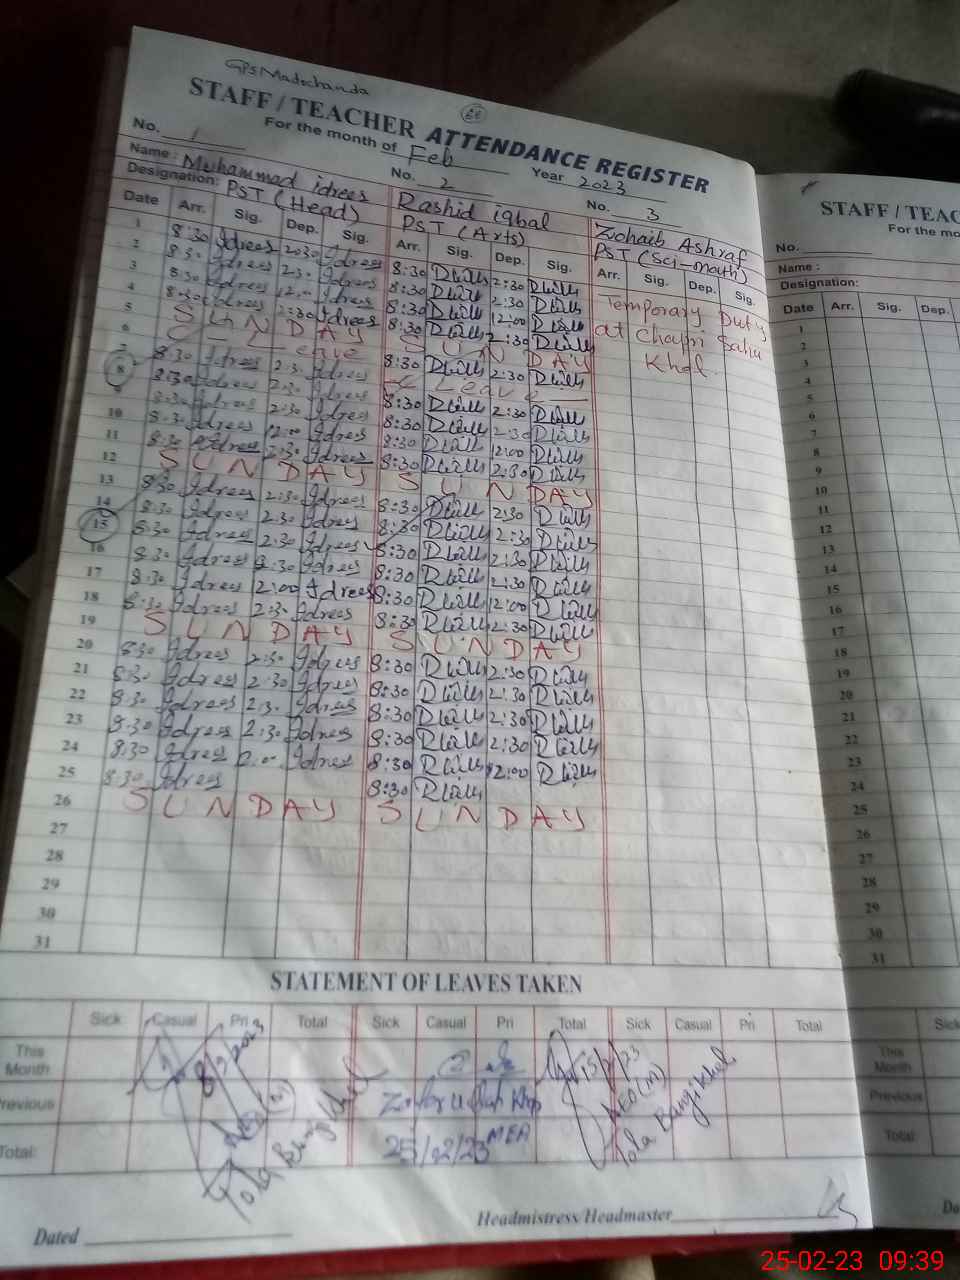 GPS Madichanda
60
STAFF / TEACHER ATTENDANCE REGISTER
For the month of Feb Year 2023
No. 1 No. 2 No. 3
Name: Muhammad idrees Rashid iqbal Zohaib Ashraf
Designation: PST (Head) PST (Arts) PST (Sci-math)
Date Arr. Sig. Dep. Sig. Arr. Sig. Dep. Sig. Arr. Sig. Dep. Sig.
Temporary Duty
at Chapri
Khel
1 8:30 Idrees 2:30 Idrees 8:30 2:30
2 8:30 Idrees 2:30 Idrees 8:30 2:30
3 8:30 Idrees 12:00 Idrees 8:30 12:00
4 8:30 Idrees 2:30 Idrees 8:30 2:30
5 SUNDAY SUNDAY
6 C - Leave 8:30 2:30
7 8:30 Idrees 2:30 Idrees C Leave
8 8:30 Idrees 2:30 Idrees 8:30 2:30
9 8:30 Idrees 2:30 Idrees 8:30 2:30
10 8:30 Idrees 12:00 Idrees 8:30 12:00
11 8:30 Idrees 2:30 Idrees 8:30 2:30
12 SUNDAY SUNDAY
13 8:30 Idrees 2:30 Idrees 8:30 2:30
14 8:30 Idrees 2:30 Idrees 8:30 2:30
15 8:30 Idrees 2:30 Idrees 8:30 2:30
16 8:30 Idrees 2:30 Idrees 8:30 2:30
17 8:30 Idrees 12:00 Idrees 8:30 12:00
18 8:30 Idrees 2:30 Idrees 8:30 2:30
19 SUNDAY SUNDAY
20 8:30 Idrees 2:30 Idrees 8:30 2:30
21 8:30 Idrees 2:30 Idrees 8:30 2:30
22 8:30 Idrees 2:30 Idrees 8:30 2:30
23 8:30 Idrees 2:30 Idrees 8:30 2:30
24 8:30 Idrees Idrees 8:30 12:00
25 8:30 Idrees 8:30
26 SUNDAY SUNDAY
27
28
29
30
31
STATEMENT OF LEAVES TAKEN
Sick Casual Pri Total Sick Casual Pri Total Sick Casual Pri Total
This Month
Previous
Total:
8/2/2023
AEO(M)
Tola Bangi Khel
Zafar Ullah Khan
25/02/23 MEA
15/2/23
AEO(M)
Tola Bangi Khel
Dated
Headmistress/Headmaster
STAFF / TEAC
For the mo
No.
Name :
Designation:
Date Arr. Sig. Dep.
1
2
3
4
5
6
7
8
9
10
11
12
13
14
15
16
17
18
19
20
21
22
23
24
25
26
27
28
29
30
31
Sick
This Month
Previous
Total:
Da
25-02-23 09:39